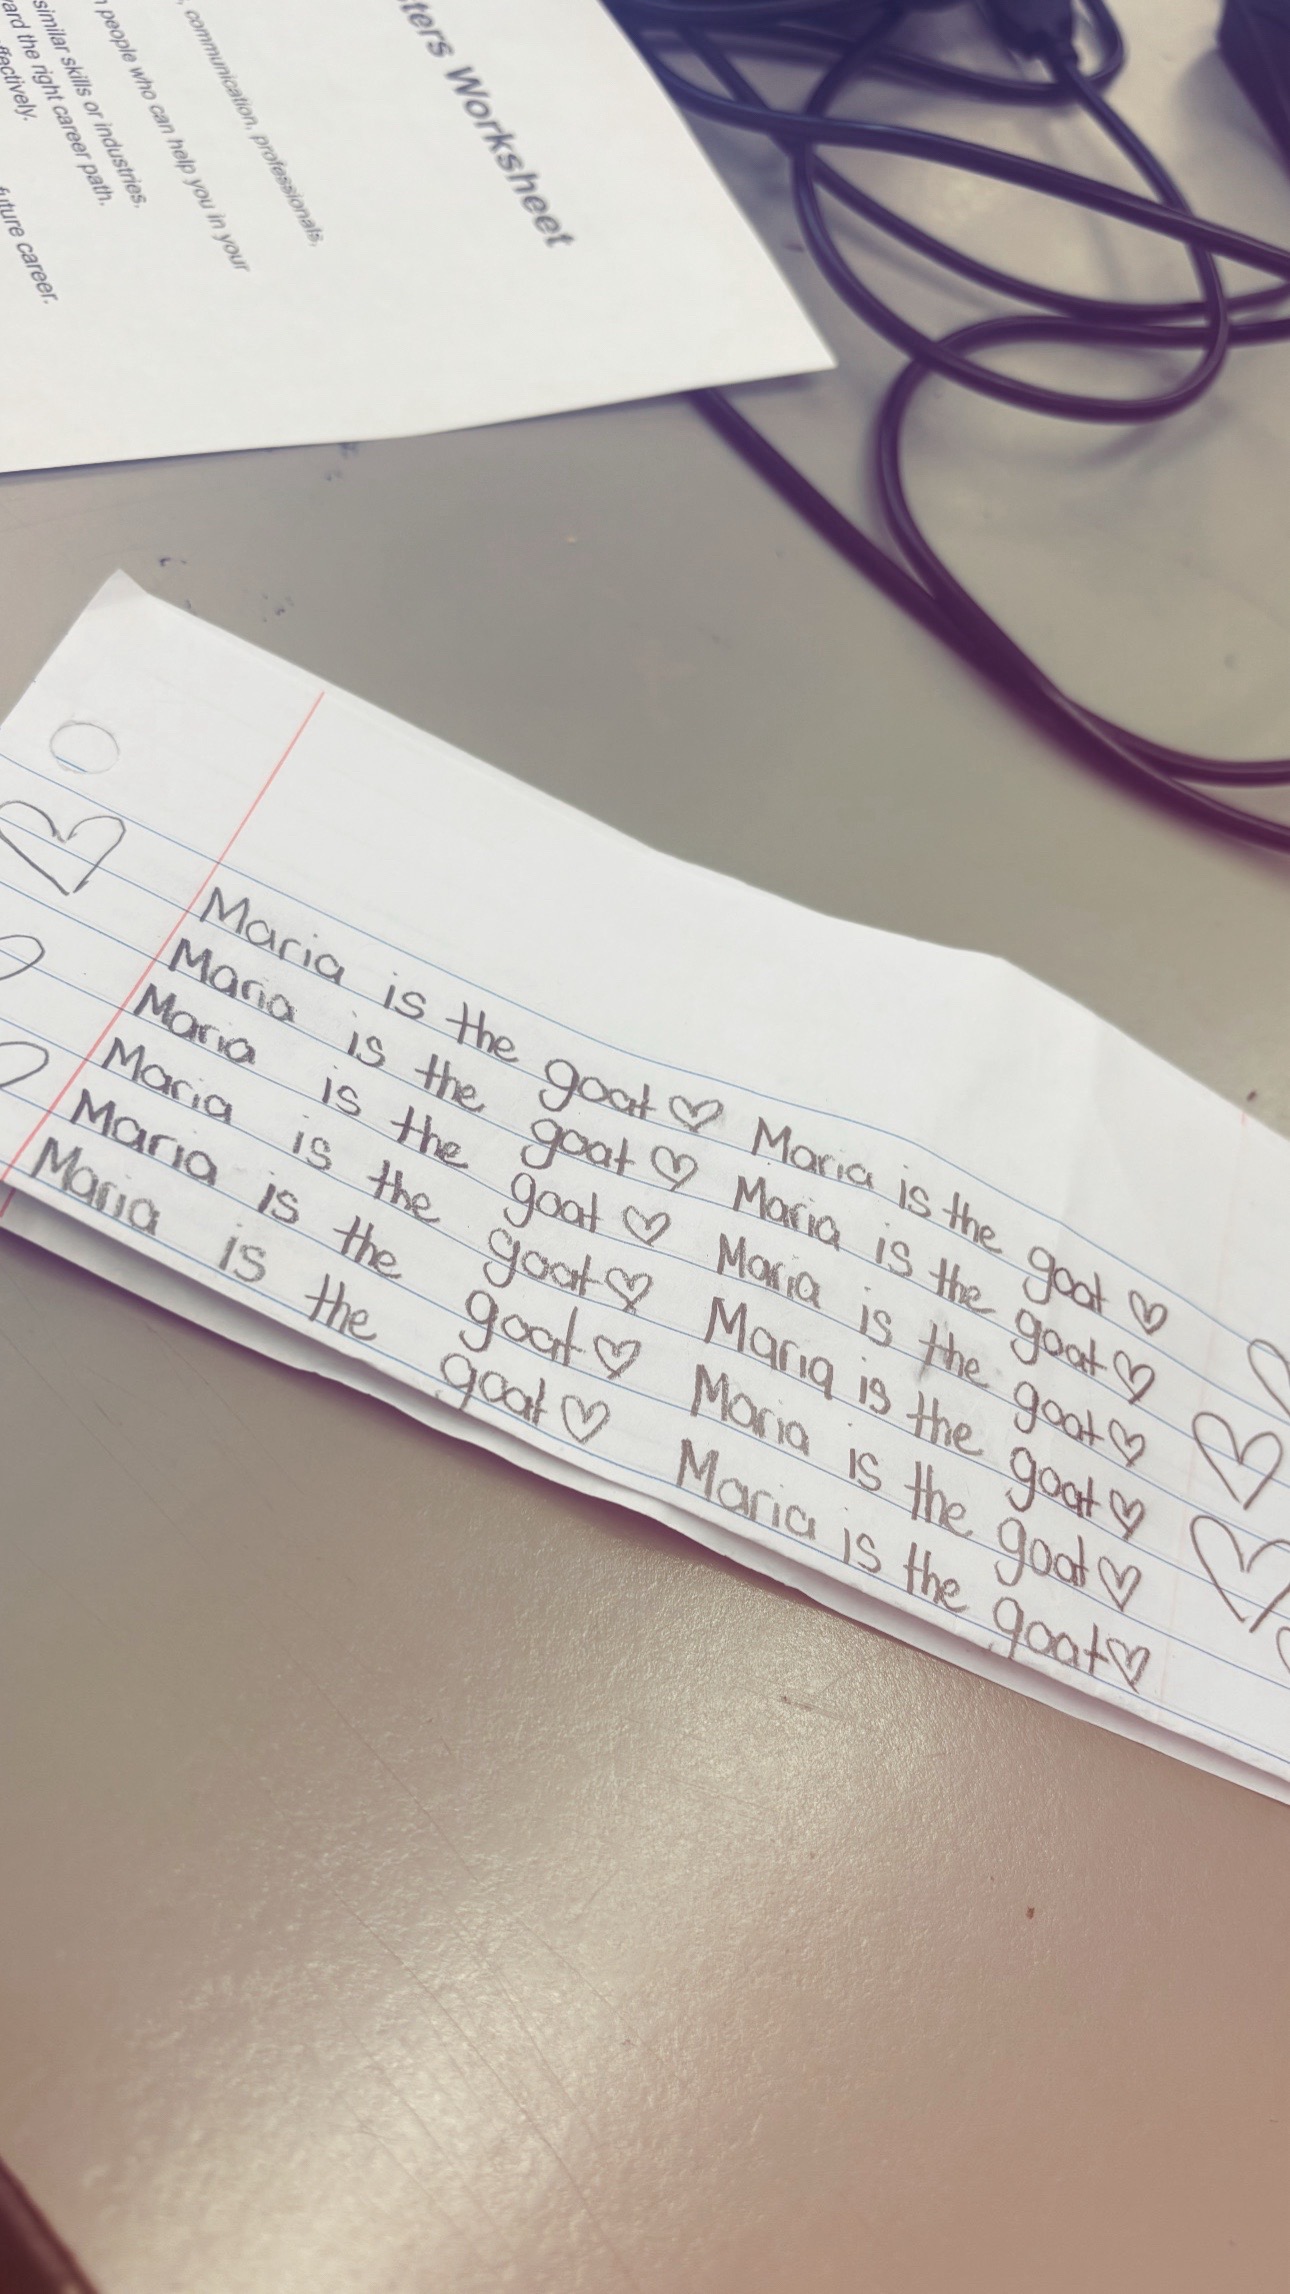 ters Worksheet
communication, professionals,
people who can help you in your
similar skills or industries.
ard the right career path.
ffectively.
future career.
Maria is the goat ♡ Maria is the goat ♡
Maria is the goat ♡ Maria is the goat ♡
Maria is the goat ♡ Maria is the goat ♡
Maria is the goat ♡ Maria is the goat ♡
Maria is the goat ♡ Maria is the goat ♡
Maria is the goat ♡ Maria is the goat ♡